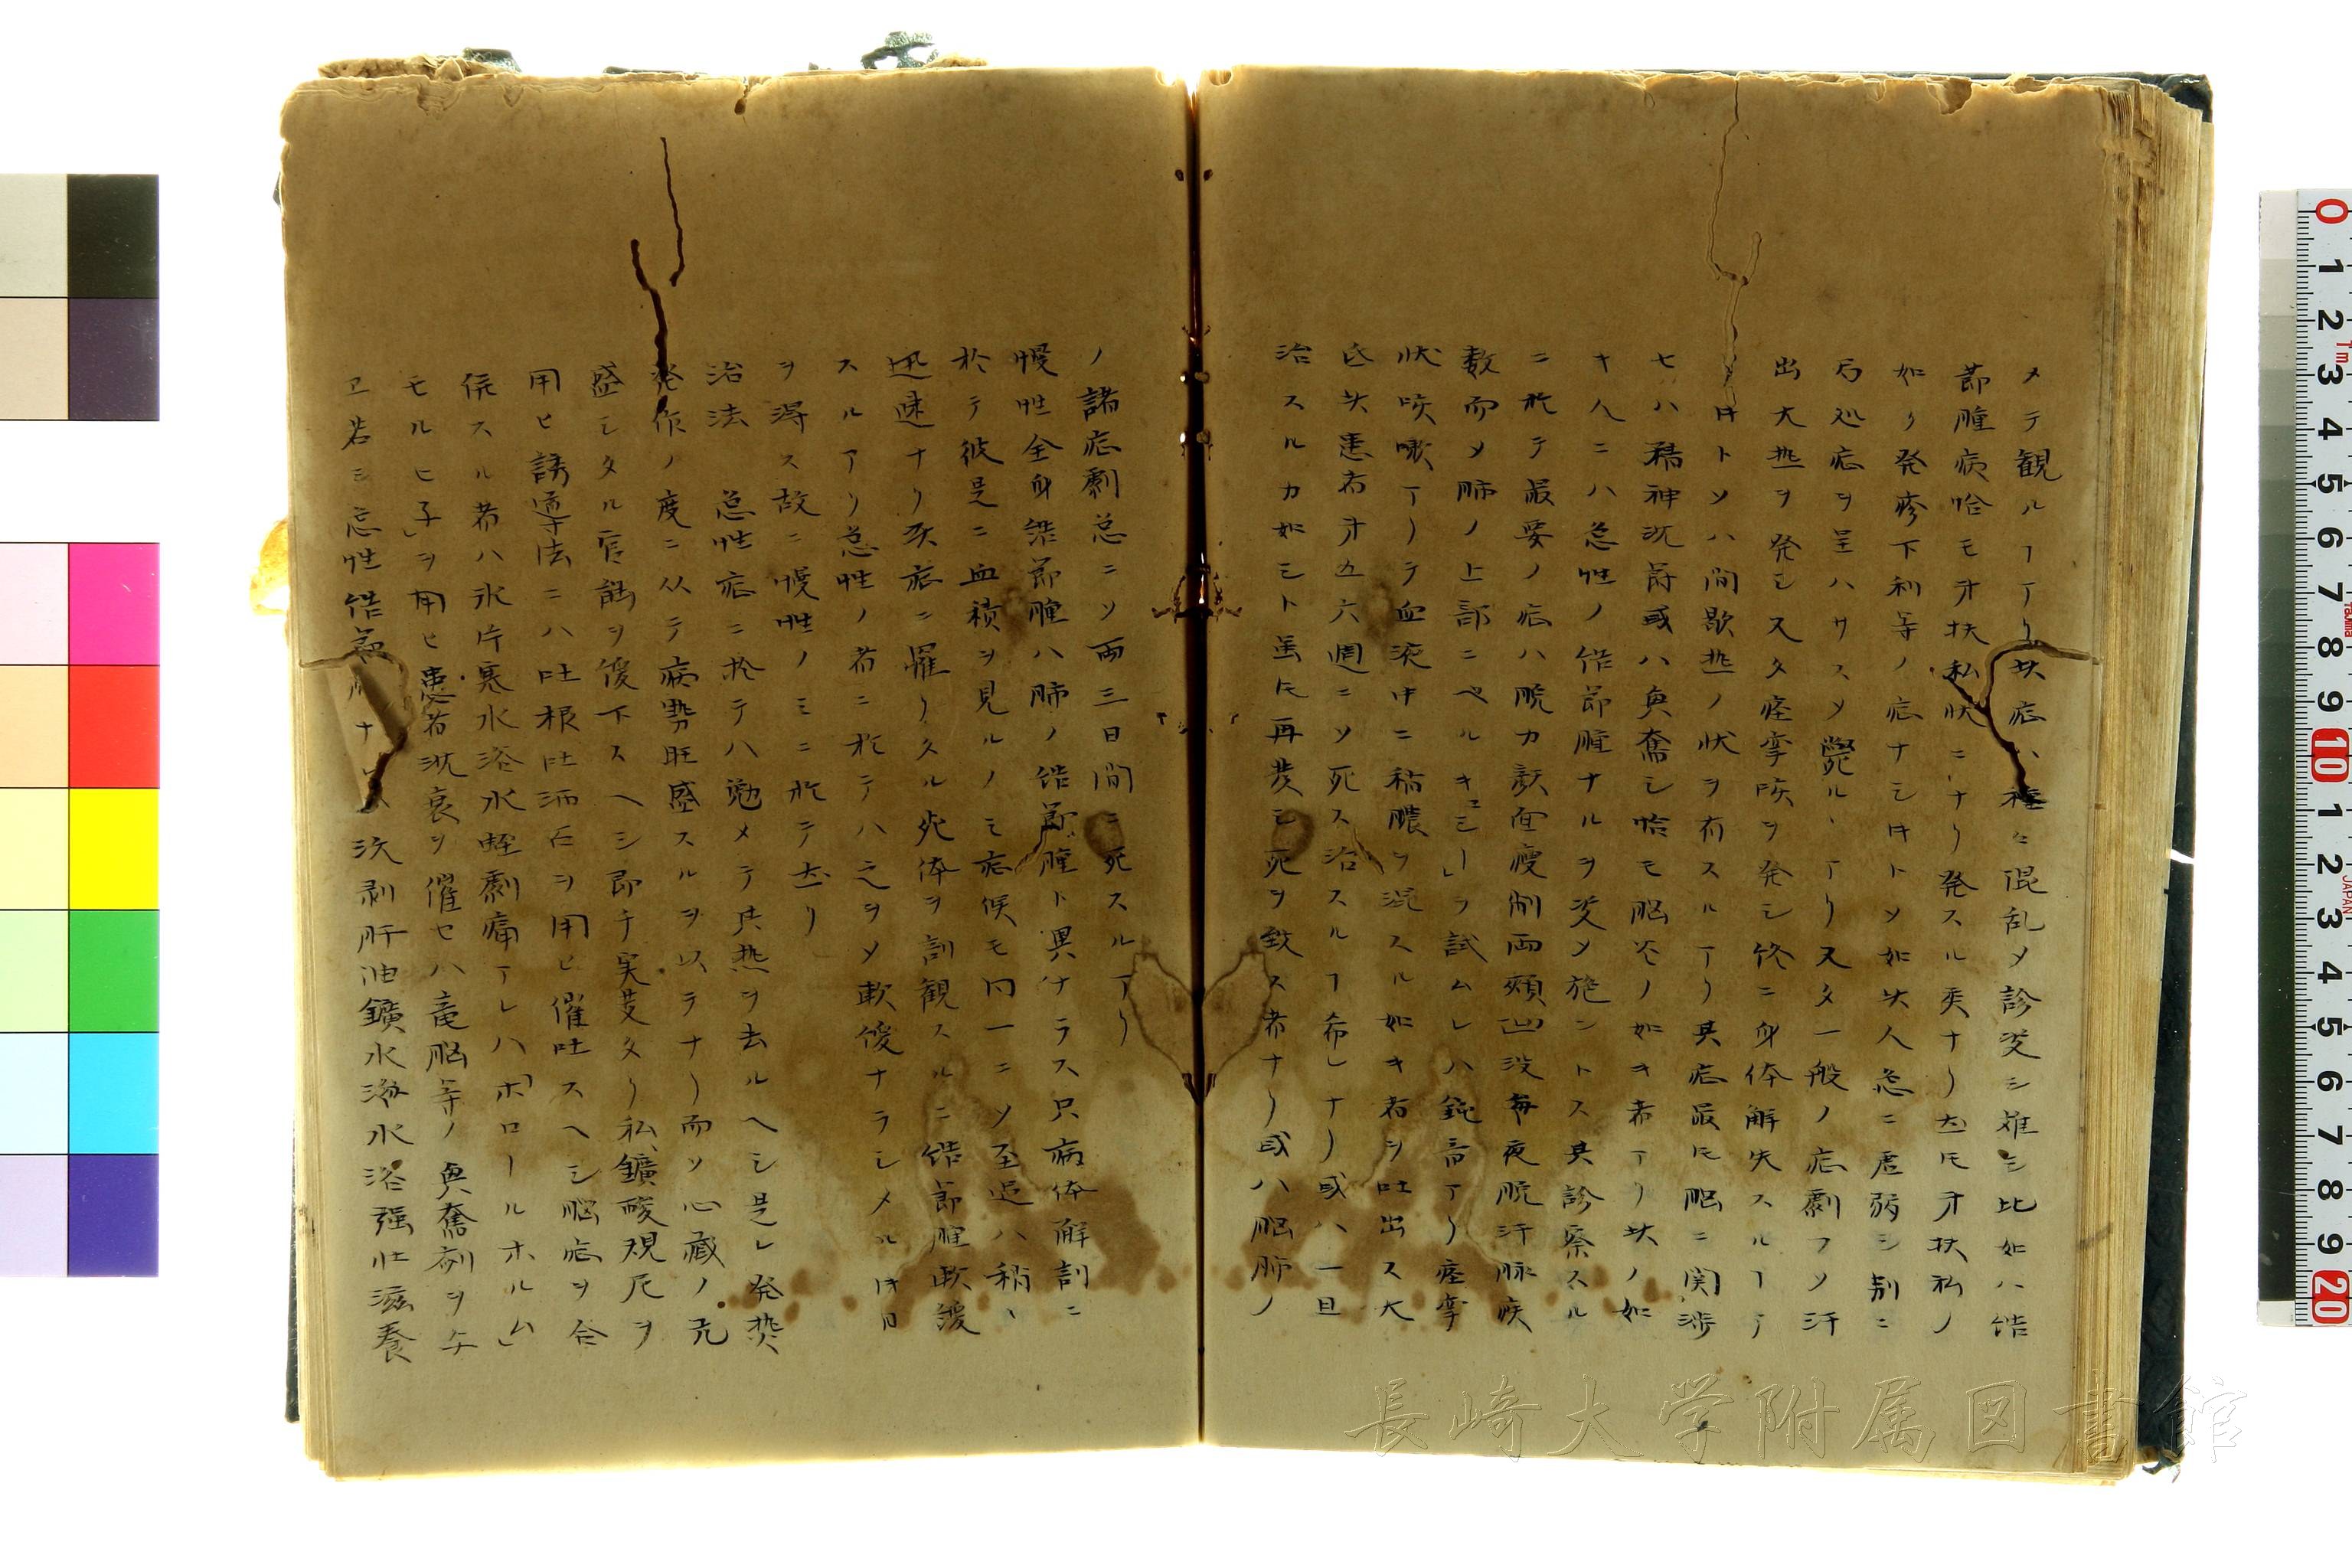 メテ観ルヿアリ此症ハ種々混乱メ診察シ難シ比如ハ結
節腫病恰モ牙扶私状ニナリ発スル類ナリ𪜈牙扶私ノ
如ク発疹下利等ノ症ナシ时トメ如此人急ニ虚弱シ別ニ
局処症ヲ呈ハサスメ斃ルヽアリ又タ一般ノ症劇フメ汗
出大熱ヲ発シ又タ痙挛咳ヲ発シ終ニ身体解失スルヿアリ
时トメハ間歇熱ノ状ヲ有スルアリ其症最モ脳ニ関渉
セハ精神沈欝或ハ奥奮シ恰モ脳炎ノ如キ者アリ此ノ如
キ人ニハ急性ノ結節腫ナルヲ察メ施ントス其診察スル
ニ於テ最要ノ症ハ脱力顔面瘦削両頬凹没毎夜脱汗脉疾
数而メ肺ノ上部ニ「ペルキュシー」ヲ試ムレハ鈍音アリ痙挛
状咳嗽アリテ血液中ニ粘膿ヲ混スル如キ者ヲ吐出ス大
氐此患者牙五六週ニメ死ス治スルヿ希レナリ或ハ一旦
治スルカ如シト虽𪜈再発シ死ヲ致ス者ナリ或ハ脳肺ノ
ノ諸症劇急ニメ両三日間ニ死スルアリ
慢性全身結節腫ハ肺ノ結節腫ト異ナラス只病体解剖ニ
於テ彼是ニ血積ヲ見ルノミ症候モ同一ニメ至迫ハ稍ヽ
迅速ナリ此症ニ罹リタル死体ヲ剖観スルニ結節腫軟湲
スルアリ急性ノ者ニ於テハ之ヲメ軟湲ナラシメル时日
ヲ得ス故ニ慢性ノミニ於テ𪜈リ
治法 急性症ニ於テハ勉メテ其熱ヲ去ルヘシ是レ発熱
発作ノ度ニ从テ病勢旺盛スルヲ以テナリ而メ心藏ノ亢
盛シタル官能ヲ湲下スヘシ即チ実芰タリ私鑛酸規尼ヲ
用ヒ誘導法ニハ吐根吐酒石ヲ用ヒ催吐スヘシ脳症ヲ合
併スル者ハ氷片寒水浴水蛭劇痛アレハ「ホロールホルム」
モルヒ子」ヲ用ヒ患者沈衰ヲ催セハ竜脳等ノ奥奮剤ヲ与
ヱ若シ忘性結節 ナ 次剥肝油鑛水海水浴强壮滋養
長崎大学附属図書館